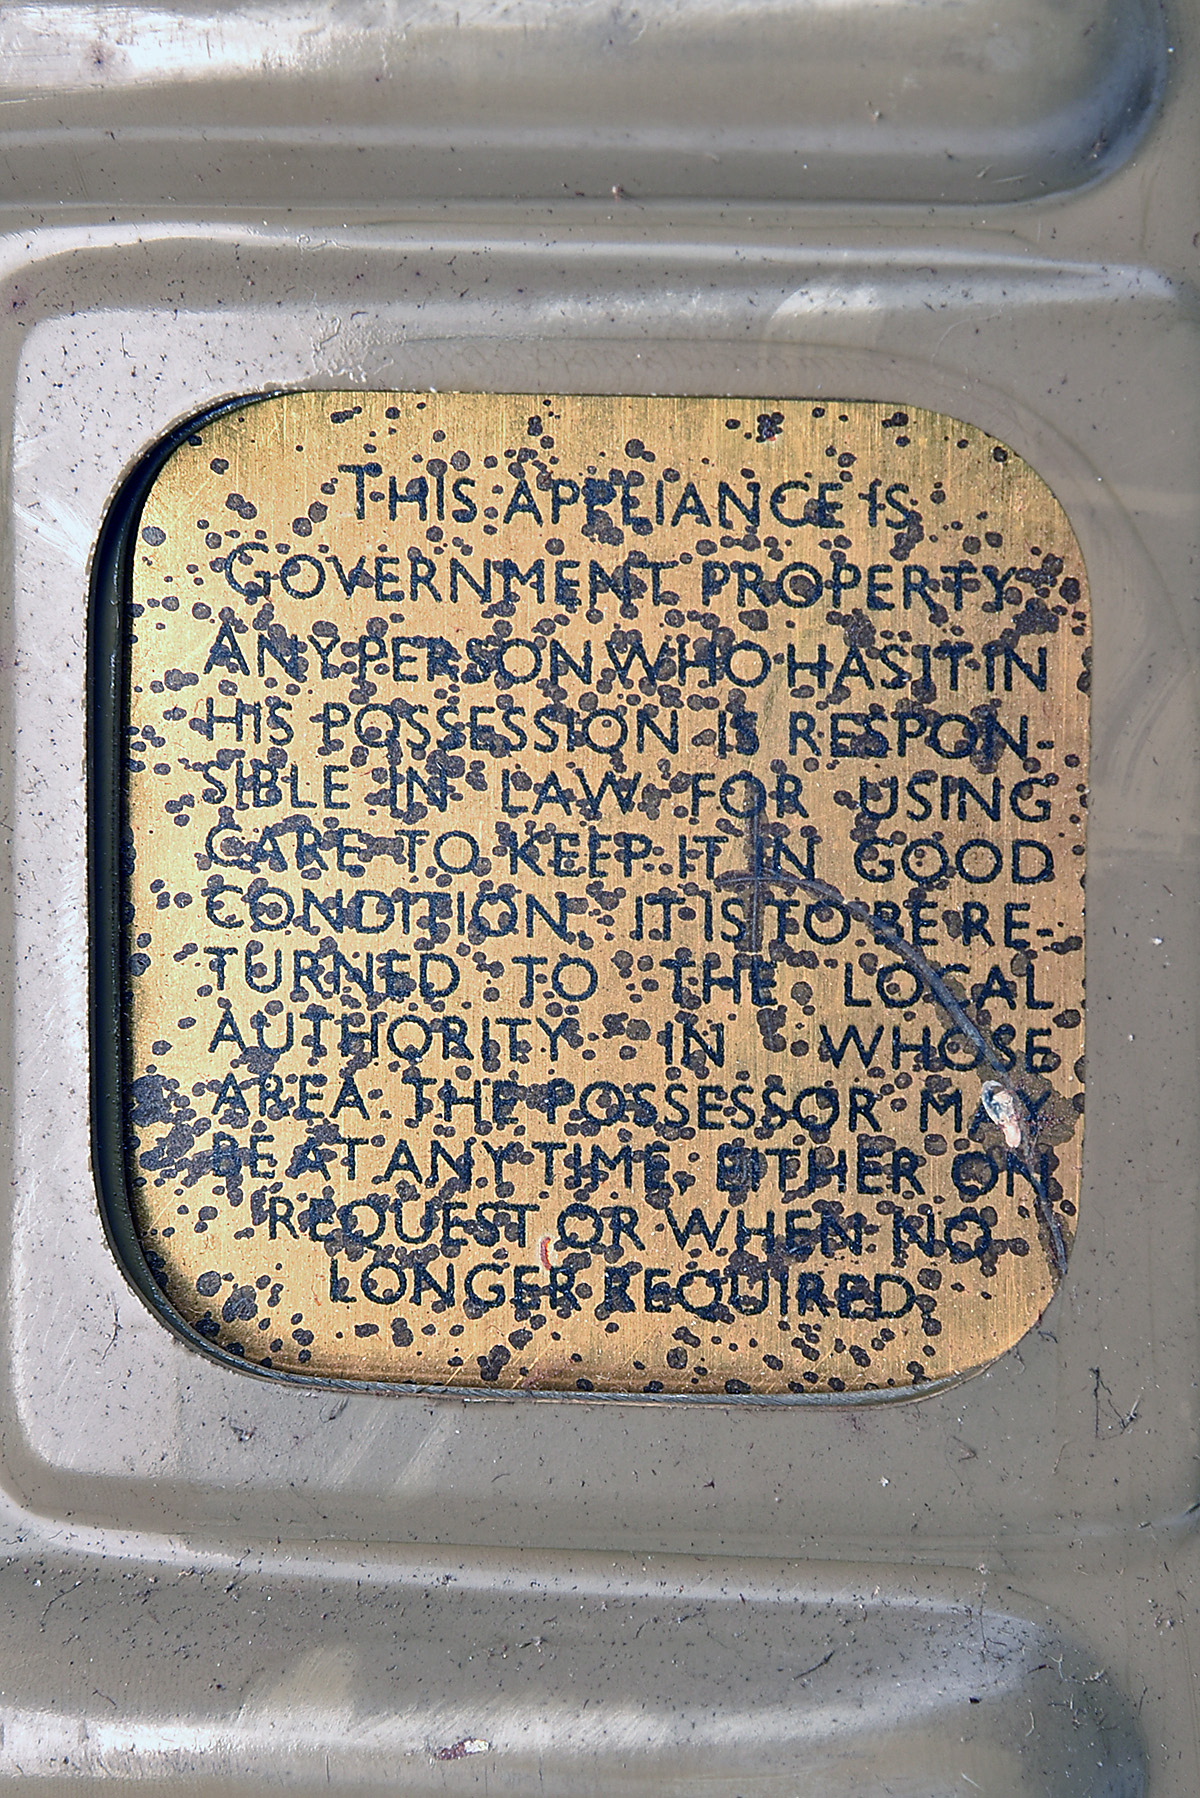 THIS APPLIANCE IS
GOVERNMENT PROPERTY
ANY PERSON WHO HAS IT IN
HIS POSSESSION IS RESPON-
SIBLE IN LAW FOR USING
CARE TO KEEP IT IN GOOD
CONDITION. IT IS TO BE RE-
TURNED TO THE LOCAL
AUTHORITY IN WHOSE
AREA THE POSSESSOR MAY
BE AT ANY TIME, EITHER ON
REQUEST OR WHEN NO
LONGER REQUIRED.